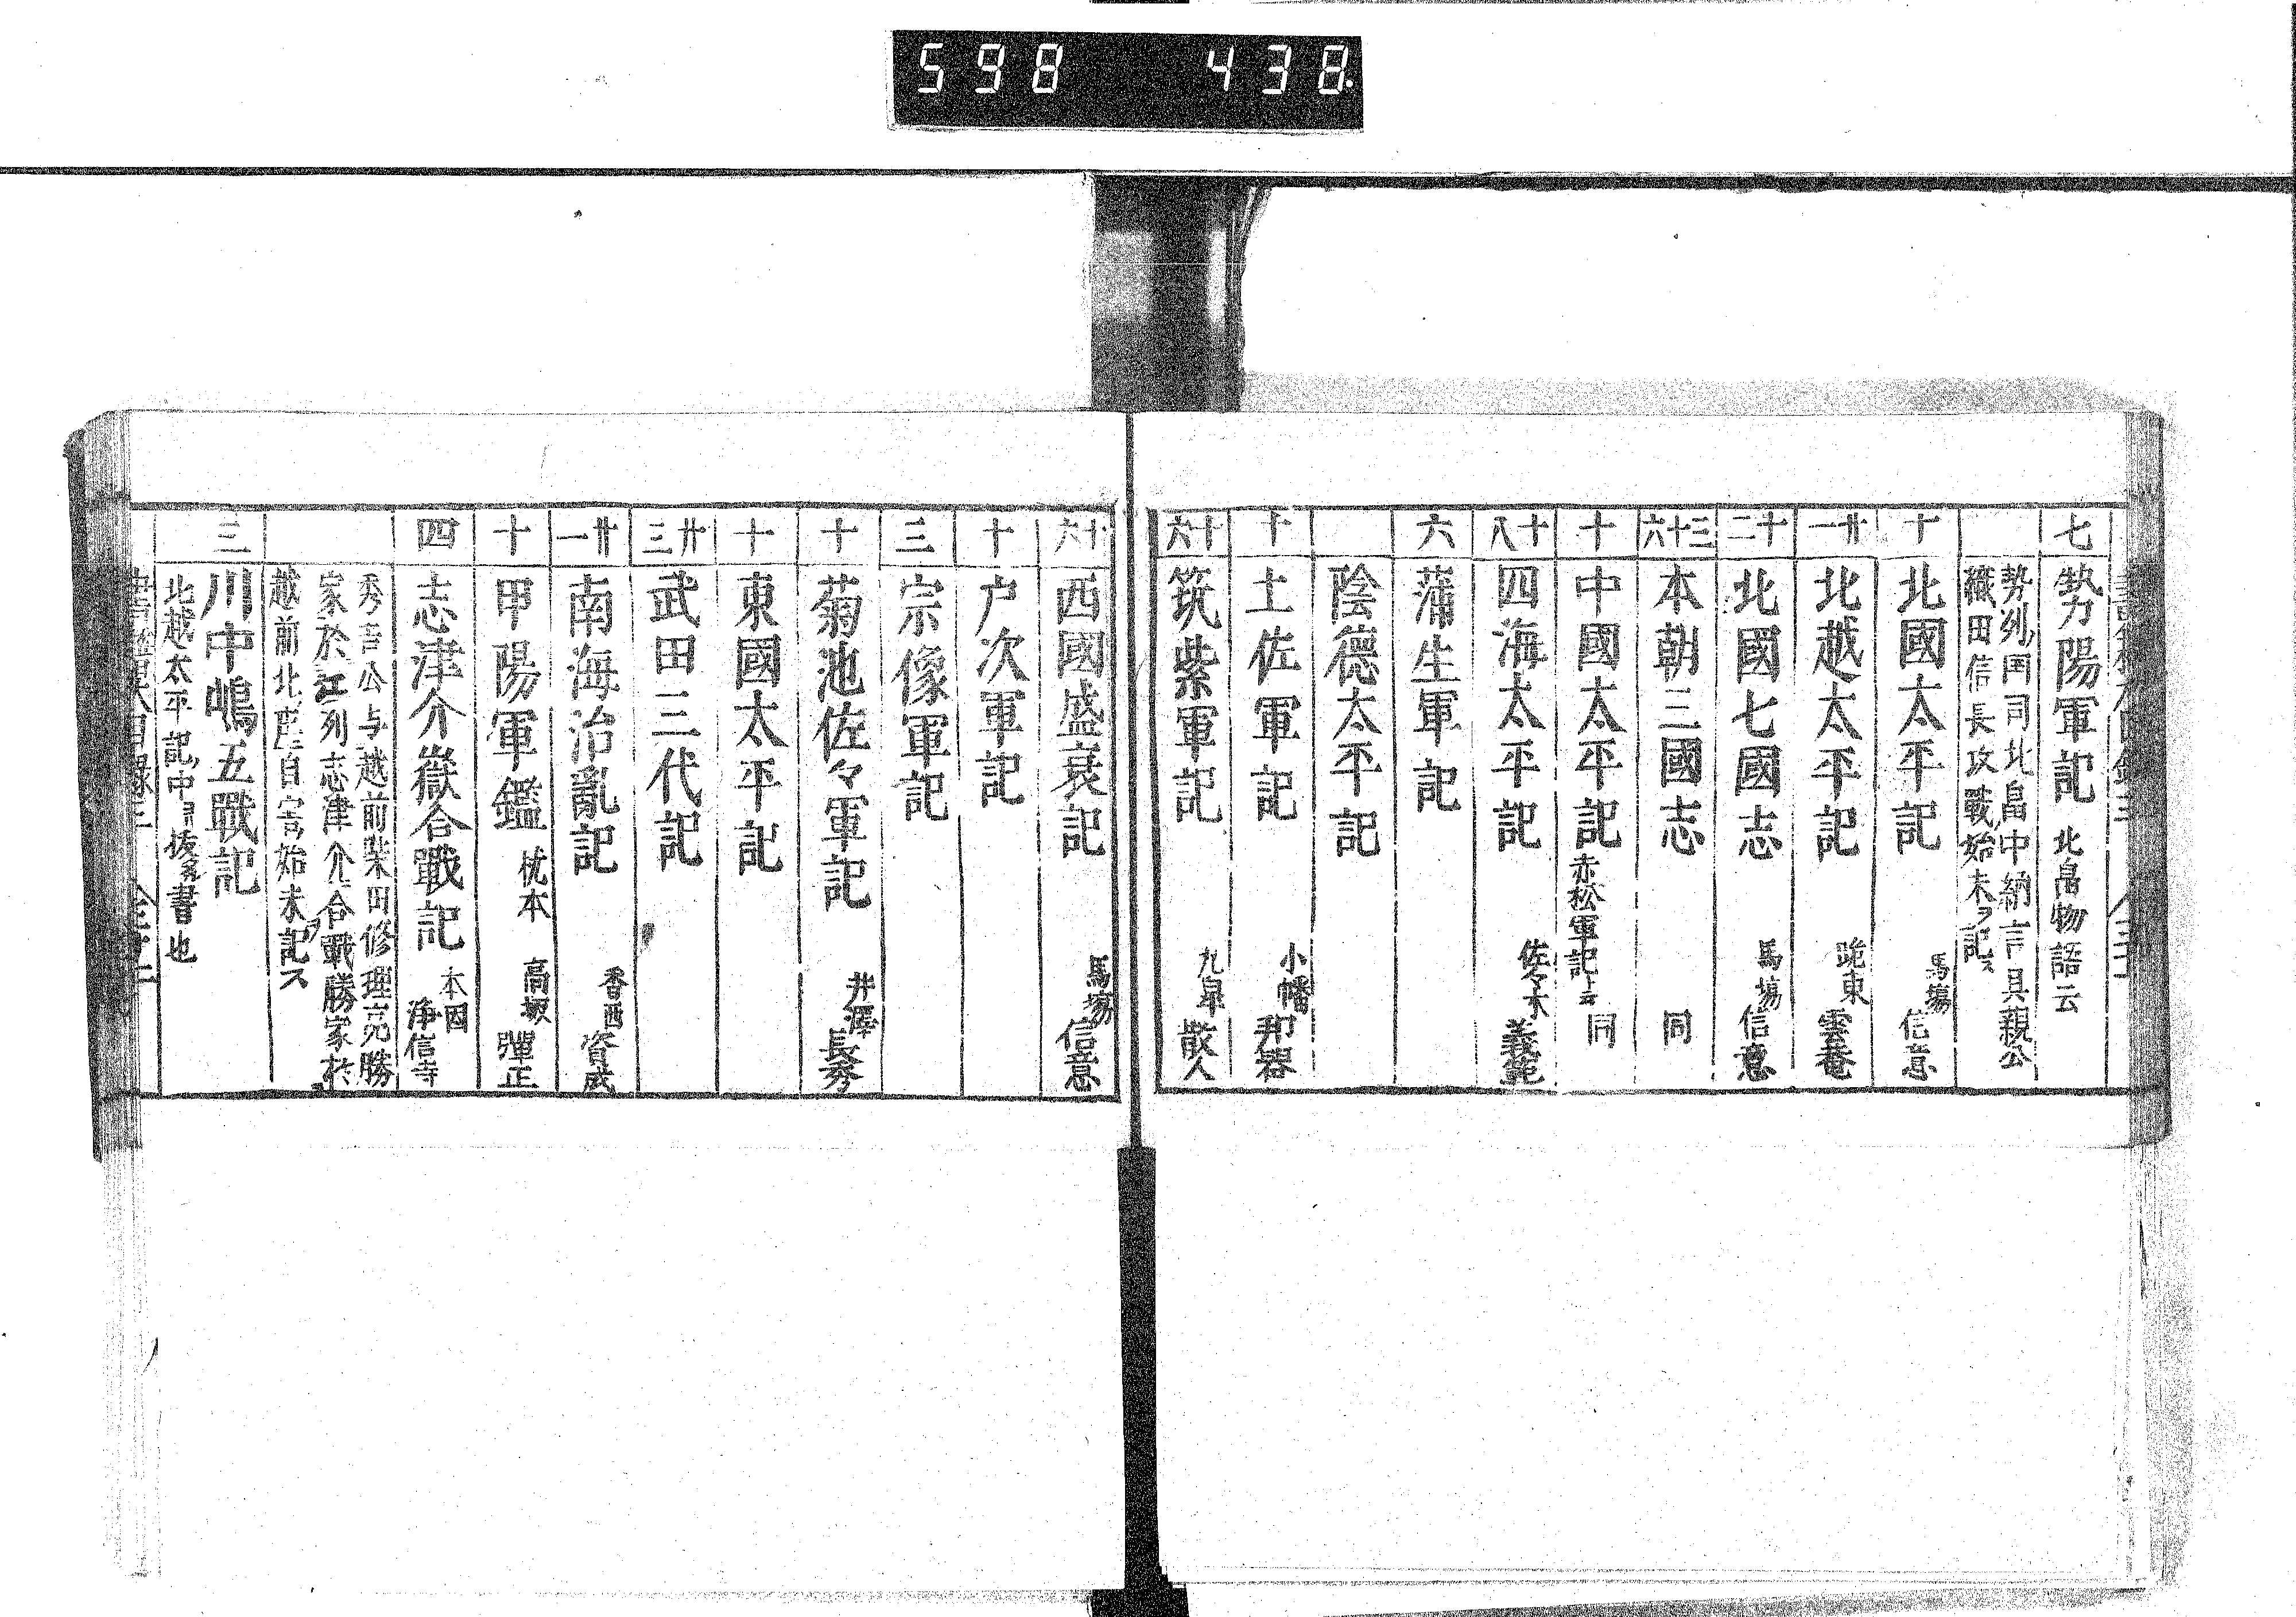 598 438.
七 勢陽軍記 北畠物語云
勢列国司北畠中納言具親公
織田信長攻戰始末ヲ記ス
十 北國太平記 馬塲信意
廿一 北越太平記 雲菴
十二 北國七國志 馬塲信意
三十六 本朝三國志 同
十 中國太平記 赤松軍記上云 同
十八 四海太平記 佐々木義範
六 蒲生軍記
陰德太平記
十 土佐軍記 小幡邦器
十六 筑紫軍記 九皐散人
十六 西國盛衰記 馬塲信意
十 戸次軍記
三 宗像軍記
十 菊池佐々軍記 井澤長秀
十 東國太平記
廿三 武田三代記
廿一 南海治亂記 香西資成
十 甲陽軍鑑 枕本 高坂彈正
四 志津介嶽合戰記 本因 淨信寺
秀吉公与越前柴田修理亮勝
家於江列志津介合戰勝家於
越前北庄自害始末記ス
三 川中嶋五戰記
北越太平記中ヨリ抜タル書也